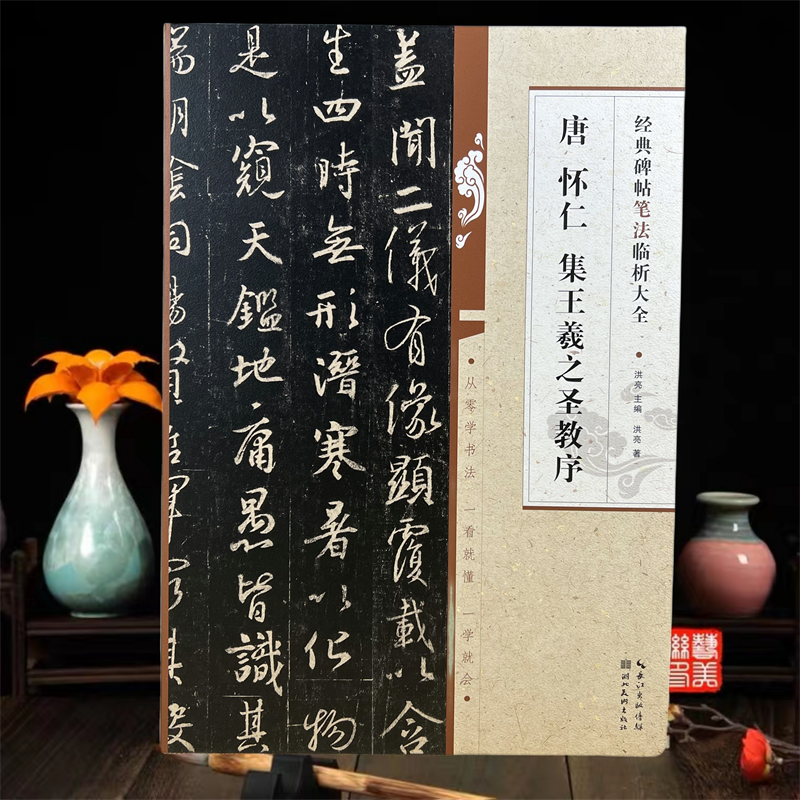 经典碑帖笔法临析大全
洪亮 主编 洪亮 著
唐 怀仁 集王羲之圣教序
长江出版传媒
湖北美术出版社
从零学书法 一看就懂 一学就会
盖聞二儀有像顯覆載以含
生四時無形潛寒暑以化物
是以窺天鑑地庸愚皆識其
端明陰洞陽賢哲罕窮其
藝美